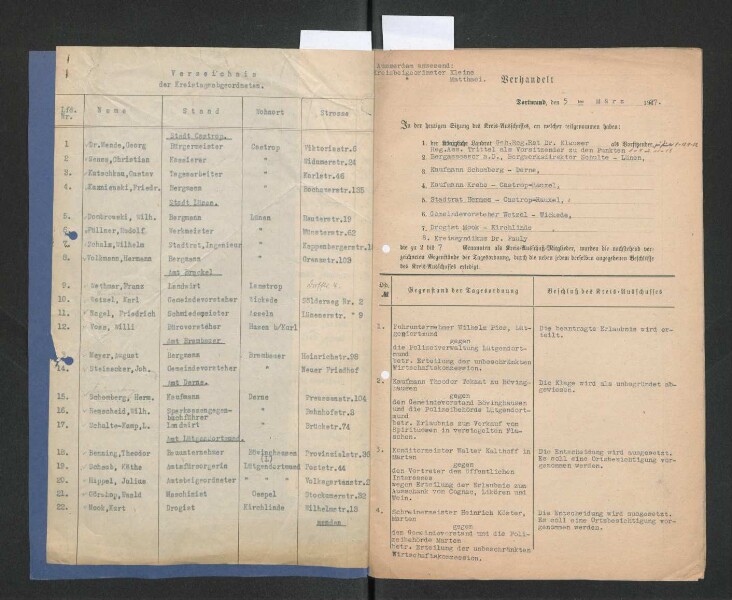 Verzeichnis
der Kreistagsabgeordneten.
Lfd. Nr. Name Stand Wohnort Strasse
Stadt Castrop.
1 Dr. Wende, Georg Bürgermeister Castrop Viktoriastr. 6
2 Christian Kesslerer " Widumerstr. 24
3 Katschkau, Gustav Tagesarbeiter " Karlstr. 46
4 Kaminski, Friedr. Bergmann " Bochumerstr. 135
Stadt Lünen.
5. Dombrowski, Wilh. Bergmann Lünen Deuterstr. 19
6. Füllner, Rudolf Werkmeister " Münsterstr. 63
7. Schulz, Wilhelm Stadtrat, Ingenieur "
8. Volkmann, Hermann Bergmann " Granstr. 109
Amt Brackel
9. Franz Landwirt
10. Wetzel, Karl Gemeindevorsteher Wickede Sölderweg Nr. 2
11. Engel, Friedrich Schmiedemeister Asseln Lünenerstr. " 9
12. Voss, Willi Bürovorsteher
Amt Brambauer
13. Meyer, August Bergmann Brambauer Heinrichstr. 98
14. Steinacker, Joh. Gemeindevorsteher " Neuer Friedhof
Amt Derne.
15. Schomberg, Herm. Kaufmann Derne Preussenstr. 104
16. Wilh. Sparkassengegen-
buchführer " Bahnhofstr. 3
17. Schulte-Kump, L. Landwirt " Brückstr. 74
Amt Lütgendortmund.
18. Behning, Theodor Bauunternehmer Bövinghausen Provinzialstr. 36
19. Schaub, Käthe Amtsfürsorgerin Lütgendortmund Poststr. 44
20. Hippel, Julius Amtsbeigeordneter " Volksgartenstr. 2
21. Cörding, Ewald Maschinist Oespel Stockumerstr. 32
22. Mook, Kurt Drogist Kirchlinde Wilhelmstr. 13
wenden
Ausserdem anwesend:
Kreisbeigeordneter Kleine
" Matthaei.
Verhandelt
Dortmund, den 5 ten März 1927.
In der heutigen Sitzung des Kreis-Ausschusses, an welcher teilgenommen haben:
1. der Königliche Landrat Geh. Reg. Rat Dr. Klausener als Vorsitzender
Reg. Ass. Trittel als Vorsitzender zu den Punkten
2 Bergassessor a.D., Bergwerksdirektor Schulte - Lünen,
3 Kaufmann Schomberg - Derne,
4 Kaufmann Krebs - Castrop-Rauxel,
5 Stadtrat Hermes - Castrop-Rauxel,
6 Gemeindevorsteher Wetzel - Wickede,
7 Drogist Mook - Kirchlinde
8. Kreissyndikus Dr. Pauly
die zu 2 bis 7 Genannten als Kreis-Ausschuß-Mitglieder, wurden die nachstehend ver-
zeichneten Gegenstände der Tagesordnung, durch die neben jedem derselben angegebenen Beschlüsse
des Kreis-Ausschusses erledigt.
Lfd. № Gegenstand der Tagesordnung Beschluß des Kreis-Ausschusses
1. Fuhrunternehmer Wilhelm Pies, Lüt-
gendortmund
gegen
die Polizeiverwaltung Lütgendort-
mund
betr. Erteilung der unbeschränkten
Wirtschaftskonzession.
Die beantragte Erlaubnis wird er-
teilt.
2. Kaufmann Theodor Toksat zu Böving-
hausen
gegen
den Gemeindevorstand Bövinghausen
und die Polizeibehörde Lütgendort-
mund
betr. Erlaubnis zum Verkauf von
Spirituosen in versiegelten Fla-
schen.
Die Klage wird als unbegründet ab-
gewiesen.
3. Konditormeister Walter Kalthoff in
Marten
gegen
den Vertreter des öffentlichen
Interesses
wegen Erteilung der Erlaubnis zum
Ausschank von Cognac, Likören und
Wein.
Die Entscheidung wird ausgesetzt.
Es soll eine Ortsbesichtigung vor-
genommen werden.
4. Schreinermeister Heinrich Küster,
Marten
gegen
den Gemeindevorstand und die Poli-
zeibehörde Marten
betr. Erteilung der unbeschränkten
Wirtschaftskonzession.
Die Entscheidung wird ausgesetzt.
Es soll eine Ortsbesichtigung vor-
genommen werden.